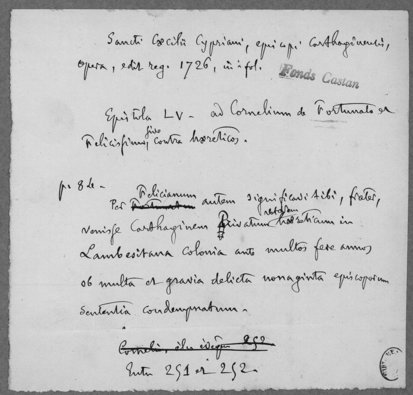 Sancti Cæcilii Cypriani, episcopi Carthaginensis,
opera, edit. reg. 1726, in fol.
Fonds Castan
Epistola LV - ad Cornelium de Fortunato et
Felicissimo, sive contra hæreticos.
p. 82 -
Felicianum
Per Fortunatum autem significavi tibi, frater,
veterem
venisse Carthaginem Privatum hæreticum in
Lambesitana colonia ante multos fere annos
ob multa et gravia delicta nonaginta episcoporum
sententia condempnatum -
Entre 251 et 252.